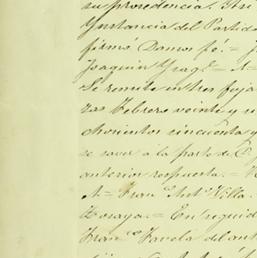 su providencia. Asi
Instancia del Partid
firmó Damos fé. = J
Joaquin
Se remite en tres foja
zas Febrero veinte y u
chocientos cincuenta y
se saver á la parte de
anterior respuesta. =
A = Fran.co Ant.o Villa
Zozaya. = En seguid
Fran.co Favela del ant